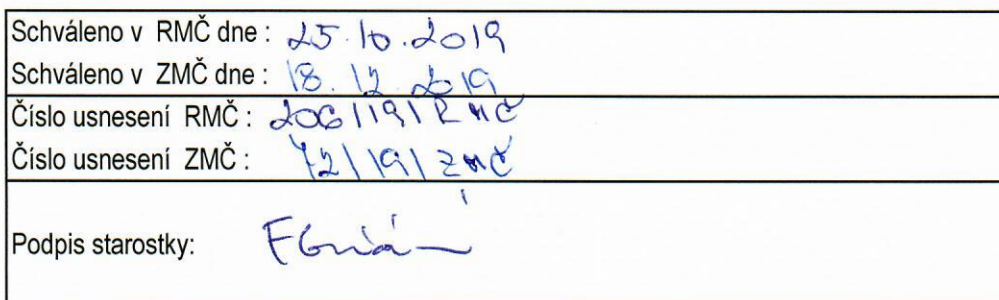 Schváleno v RMČ dne : 25.10.2019
Schváleno v ZMČ dne : 18.12.2019
Číslo usnesení RMČ : 206/19/RMČ
Číslo usnesení ZMČ : 72/19/ZMČ
Podpis starostky: